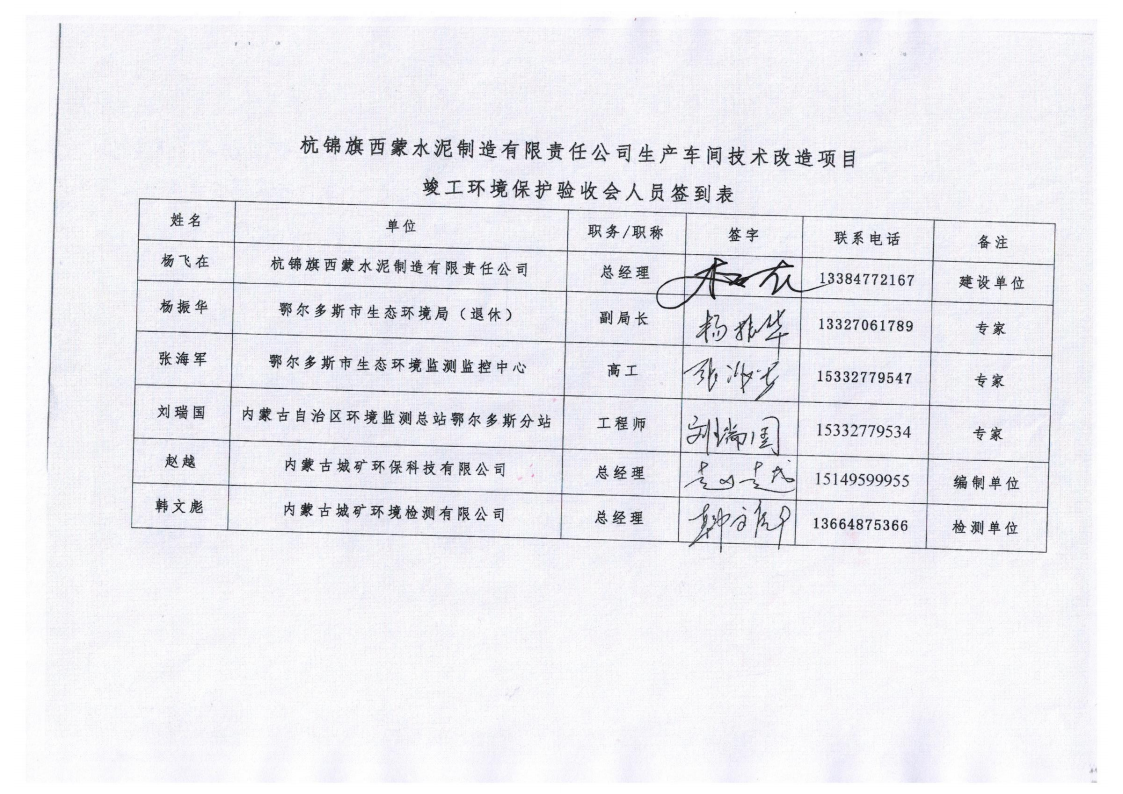 杭锦旗西蒙水泥制造有限责任公司生产车间技术改造项目
竣工环境保护验收会人员签到表
姓名 单位 职务/职称 签字 联系电话 备注
杨飞在 杭锦旗西蒙水泥制造有限责任公司 总经理 13384772167 建设单位
杨振华 鄂尔多斯市生态环境局（退休） 副局长 杨振华 13327061789 专家
张海军 鄂尔多斯市生态环境监测监控中心 高工 张海军 15332779547 专家
刘瑞国 内蒙古自治区环境监测总站鄂尔多斯分站 工程师 刘瑞国 15332779534 专家
赵越 内蒙古城矿环保科技有限公司 总经理 15149599955 编制单位
韩文彪 内蒙古城矿环境检测有限公司 总经理 韩文彪 13664875366 检测单位